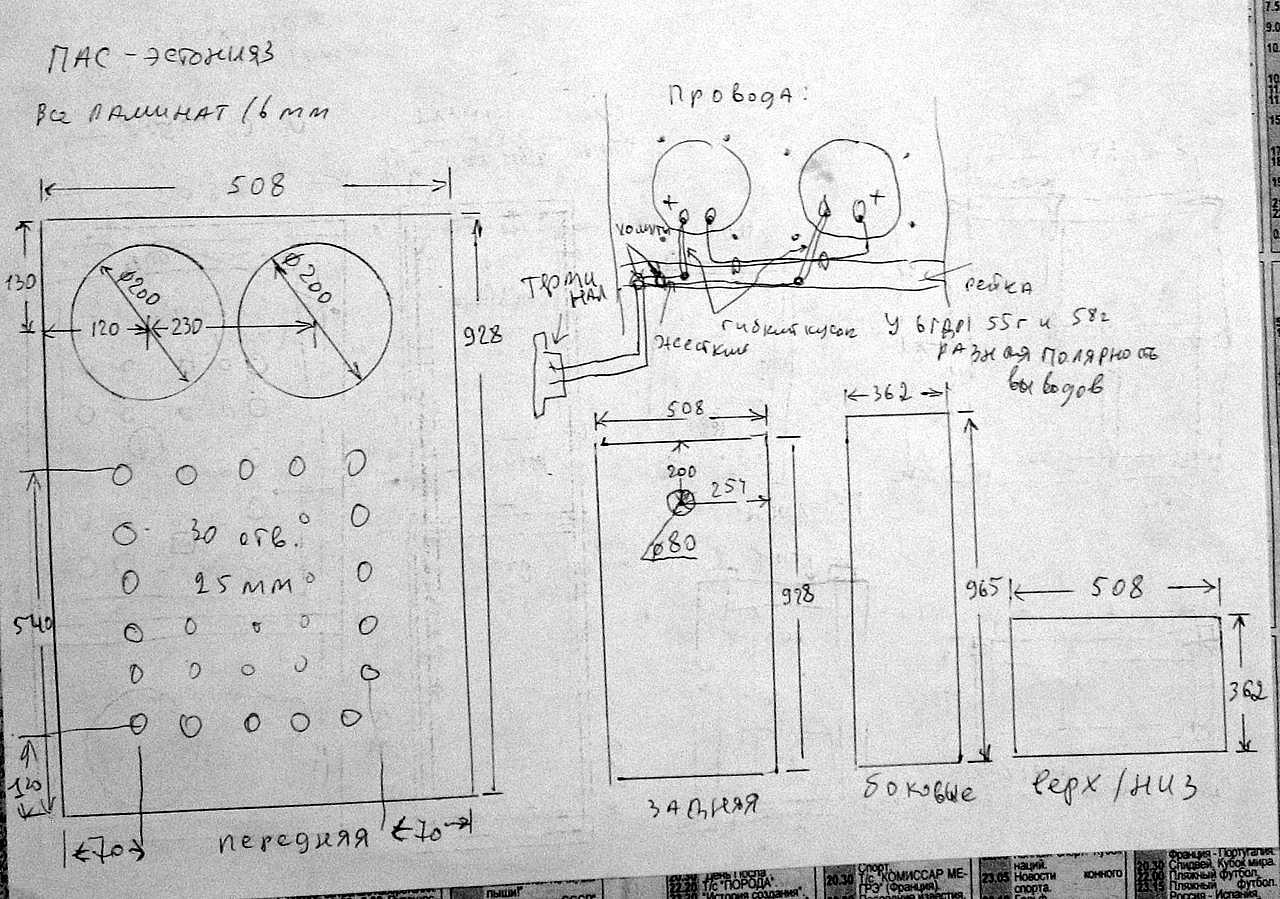 ПАС - ЭСТОНИЯ3
Все ЛАМИНАТ 16 мм
508
130
ф200
ф200
120
230
928
30 отв.
25 мм
540
120
70
передняя
70
Провода:
+
+
хомуты
ТЕРМИ
НАЛ
рейка
гибкий кусок
жесткие
У 6ГДР1 55г и 58г
РАЗНАЯ ПОЛЯРНОСТЬ
выводов
508
200
254
ф80
928
ЗАДНЯЯ
362
965
боковые
508
362
верх / НИЗ
22.20 Т/с "ПОРОДА"
"История создания".
пыши!"
Спорт.
20.30 Т/с "КОМИССАР МЕ-
ГРЭ" (Франция).
Последние известия.
наций.
23.05 Новости конного
спорта.
Франция - Португалия.
20.30 Спидвей. Кубок мира.
22.00 Пляжный футбол.
23.15 Пляжный футбол.
Россия - Испания